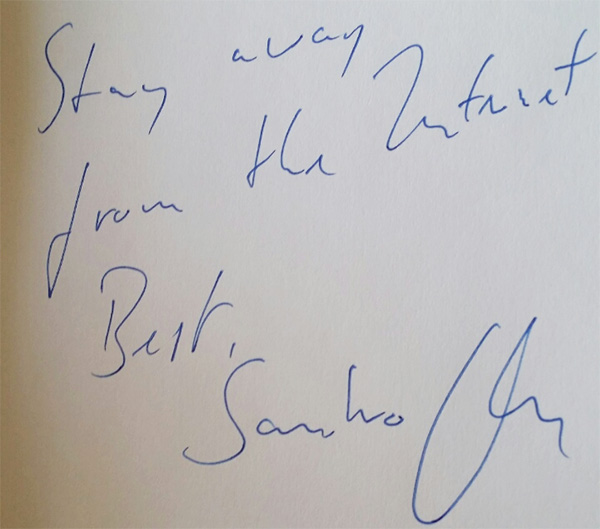 Stay away
from the Internet
Best,
Sandro